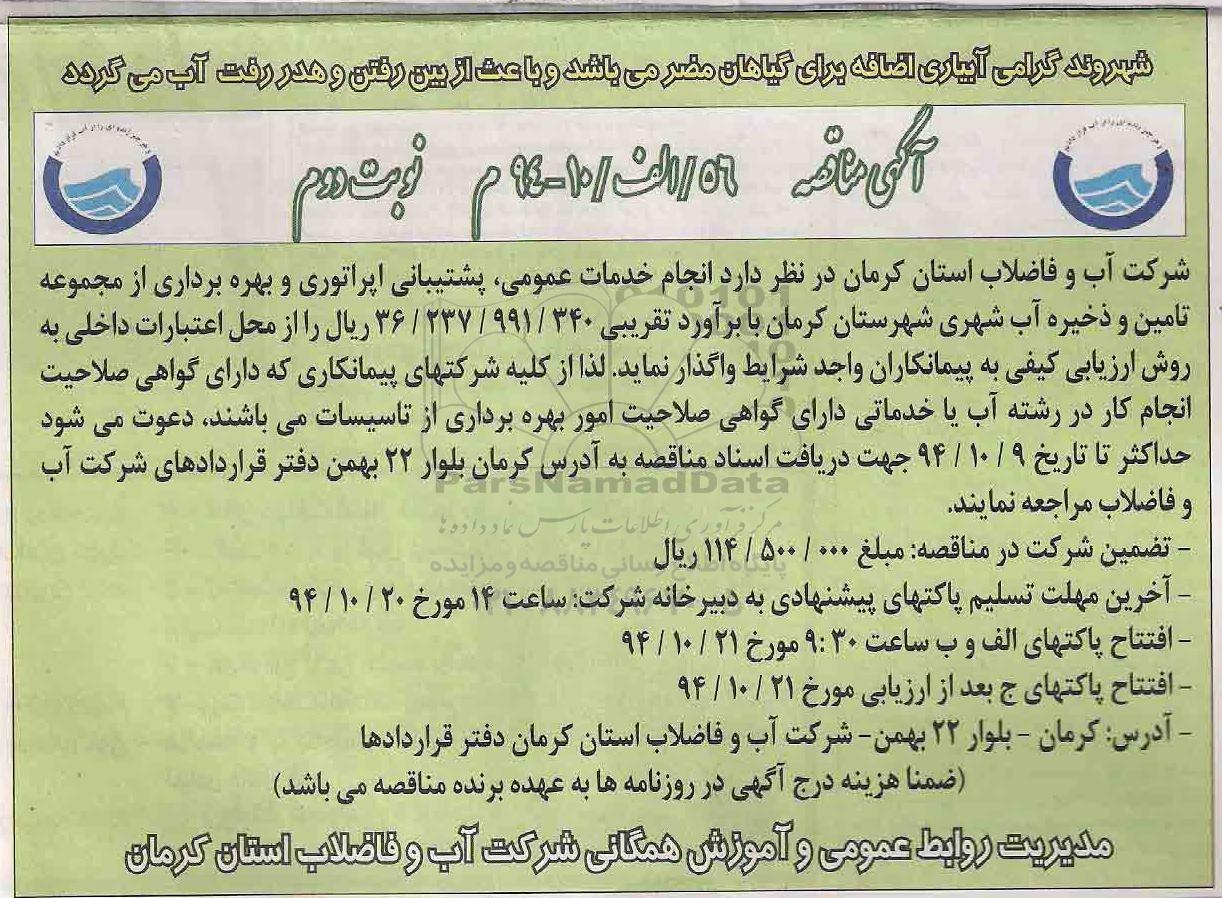 شهروند گرامی آبیاری اضافه برای گیاهان مضر می باشد و باعث از بین رفتن و هدر رفت آب می گردد
آگهی مناقصه ۵۶/الف/۱۰-۹۴ م نوبت دوم
شرکت آب و فاضلاب استان کرمان در نظر دارد انجام خدمات عمومی، پشتیبانی اپراتوری و بهره برداری از مجموعه
تامین و ذخیره آب شهری شهرستان کرمان با برآورد تقریبی ۳۴۰ / ۹۹۱ / ۲۳۷ / ۳۶ ریال را از محل اعتبارات داخلی به
روش ارزیابی کیفی به پیمانکاران واجد شرایط واگذار نماید. لذا از کلیه شرکتهای پیمانکاری که دارای گواهی صلاحیت
انجام کار در رشته آب یا خدماتی دارای گواهی صلاحیت امور بهره برداری از تاسیسات می باشند، دعوت می شود
حداکثر تا تاریخ ۹ / ۱۰ / ۹۴ جهت دریافت اسناد مناقصه به آدرس کرمان بلوار ۲۲ بهمن دفتر قراردادهای شرکت آب
و فاضلاب مراجعه نمایند.
ParsNamadData
مرکز فرآوری اطلاعات پارس نماد داده ها
- تضمین شرکت در مناقصه: مبلغ ۰۰۰ / ۵۰۰ / ۱۱۴ ریال
پایگاه اطلاع رسانی مناقصه و مزایده
- آخرین مهلت تسلیم پاکتهای پیشنهادی به دبیرخانه شرکت: ساعت ۱۴ مورخ ۲۰ / ۱۰ / ۹۴
- افتتاح پاکتهای الف و ب ساعت ۹:۳۰ مورخ ۲۱ / ۱۰ / ۹۴
- افتتاح پاکتهای ج بعد از ارزیابی مورخ ۲۱ / ۱۰ / ۹۴
- آدرس: کرمان - بلوار ۲۲ بهمن- شرکت آب و فاضلاب استان کرمان دفتر قراردادها
(ضمنا هزینه درج آگهی در روزنامه ها به عهده برنده مناقصه می باشد)
مدیریت روابط عمومی و آموزش همگانی شرکت آب و فاضلاب استان کرمان